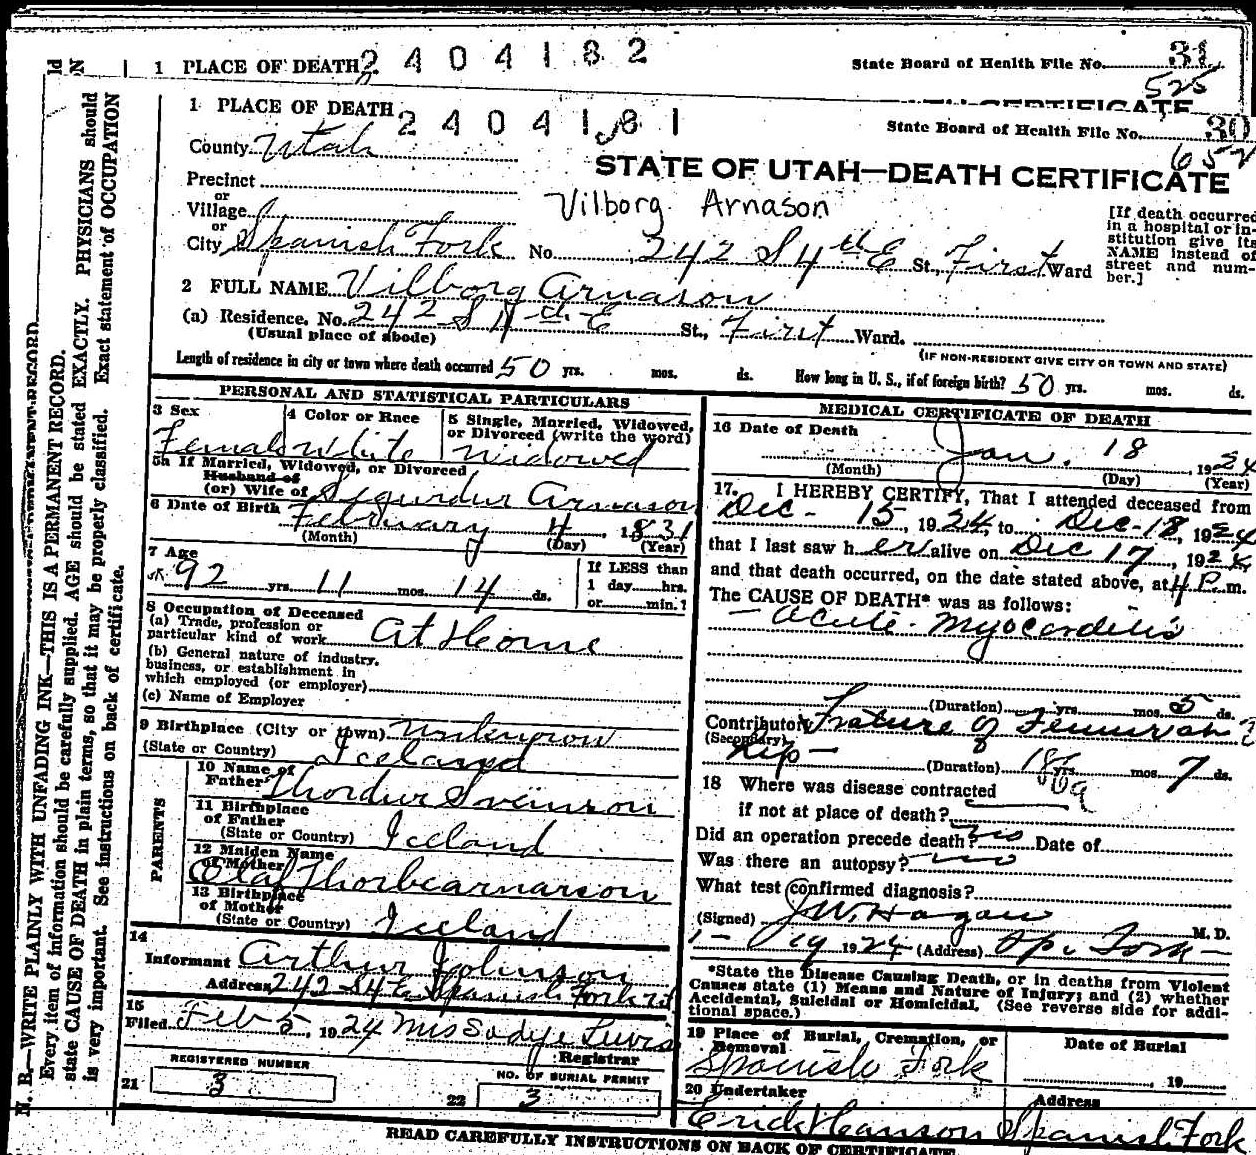 1 PLACE OF DEATH 2 4 0 4 1 8 2 State Board of Health File No. 31
525
CERTIFICATE
1 PLACE OF DEATH 2 4 0 4 1 8 1 State Board of Health File No. 30
652
County Utah
STATE OF UTAH—DEATH CERTIFICATE
Precinct
or
Village
or
Vilborg Arnason
[If death occurred in a hospital or in-stitution give its NAME instead of street and num-ber.]
City Spanish Fork No. 242 S 4th E St., First Ward
2 FULL NAME Vilborg Arnason
(a) Residence. No. 242 S 4th E St., First Ward.
(Usual place of abode) (IF NON-RESIDENT GIVE CITY OR TOWN AND STATE)
Length of residence in city or town where death occurred 50 yrs. mos. ds. How long in U. S., if of foreign birth? 50 yrs. mos. ds.
PERSONAL AND STATISTICAL PARTICULARS
3 Sex
Female
4 Color or Race
White
5 Single, Married, Widowed,
or Divorced (write the word)
Widowed
5a If Married, Widowed, or Divorced
Husband of
(or) Wife of Sigurdur Arnason
6 Date of Birth February 4, 1831
(Month) (Day) (Year)
7 Age
92 yrs. 11 mos. 14 ds.
If LESS than
1 day hrs.
or min.?
8 Occupation of Deceased
(a) Trade, profession or
particular kind of work At Home
(b) General nature of industry,
business, or establishment in
which employed (or employer)
(c) Name of Employer
9 Birthplace (City or town) Unknown
(State or Country) Iceland
PARENTS
10 Name of
Father Thordur Sveinson
11 Birthplace
of Father
(State or Country) Iceland
12 Maiden Name
of Mother Olaf Thorbearnarson
13 Birthplace
of Mother
(State or Country) Iceland
14
Informant Arthur Johnson
Address 242 S 4 E Spanish Fork
15
Filed Feb 5, 1924 Mrs Sadye Lewis
Registrar
REGISTERED NUMBER
21 3
NO. OF BURIAL PERMIT
22 3
MEDICAL CERTIFICATE OF DEATH
16 Date of Death Jan. 18, 1924
(Month) (Day) (Year)
17. I HEREBY CERTIFY, That I attended deceased from
Dec- 15, 1924, to Dec-18, 1924
that I last saw her alive on Dec 17, 1924
and that death occurred, on the date stated above, at 4 P.m.
The CAUSE OF DEATH* was as follows:
— acute myocarditis
(Duration) yrs. mos. 5 ds.
Contributory Frature of Femur
(Secondary) Hip — (Duration) yrs. mos. 7 ds.
18 Where was disease contracted
if not at place of death?
Did an operation precede death? no Date of
Was there an autopsy? no
What test confirmed diagnosis?
(Signed) J.W. Hagan M. D.
1- 19 1924 (Address) Sp. Fork
*State the Disease Causing Death, or in deaths from Violent
Causes state (1) Means and Nature of Injury; and (2) whether
Accidental, Suicidal or Homicidal. (See reverse side for addi-
tional space.)
19 Place of Burial, Cremation, or
Removal
Spanish Fork
Date of Burial
, 19
20 Undertaker Address
Erick Hanson Spanish Fork
READ CAREFULLY INSTRUCTIONS ON BACK OF CERTIFICATE.
N. B.—WRITE PLAINLY WITH UNFADING INK—THIS IS A PERMANENT RECORD.
Every item of information should be carefully supplied. AGE should be stated EXACTLY. PHYSICIANS should
state CAUSE OF DEATH in plain terms, so that it may be properly classified. Exact statement of OCCUPATION
is very important. See instructions on back of certificate.